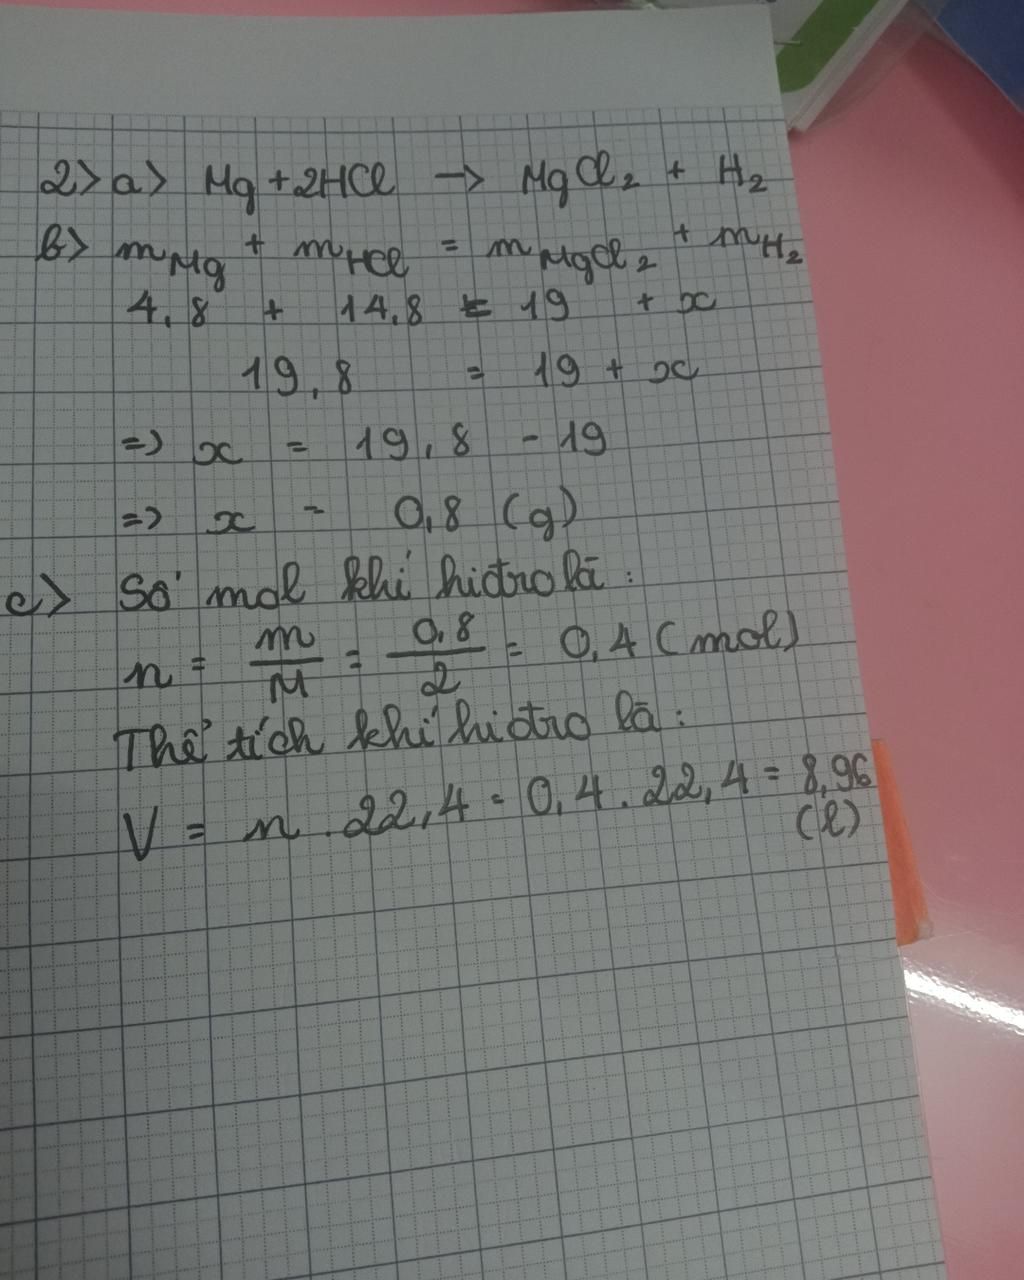 2> a> Mg + 2HCl → MgCl₂ + H₂
b> mMg + mHCl = mMgCl₂ + mH₂
4,8 + 14,8 = 19 + x
19,8 = 19 + x
=> x = 19,8 - 19
=> x = 0,8 (g)
c> Số mol khí hiđro là :
n = m/M = 0,8/2 = 0,4 (mol)
Thể tích khí hiđro là :
V = n . 22,4 = 0,4 . 22,4 = 8,96
(l)